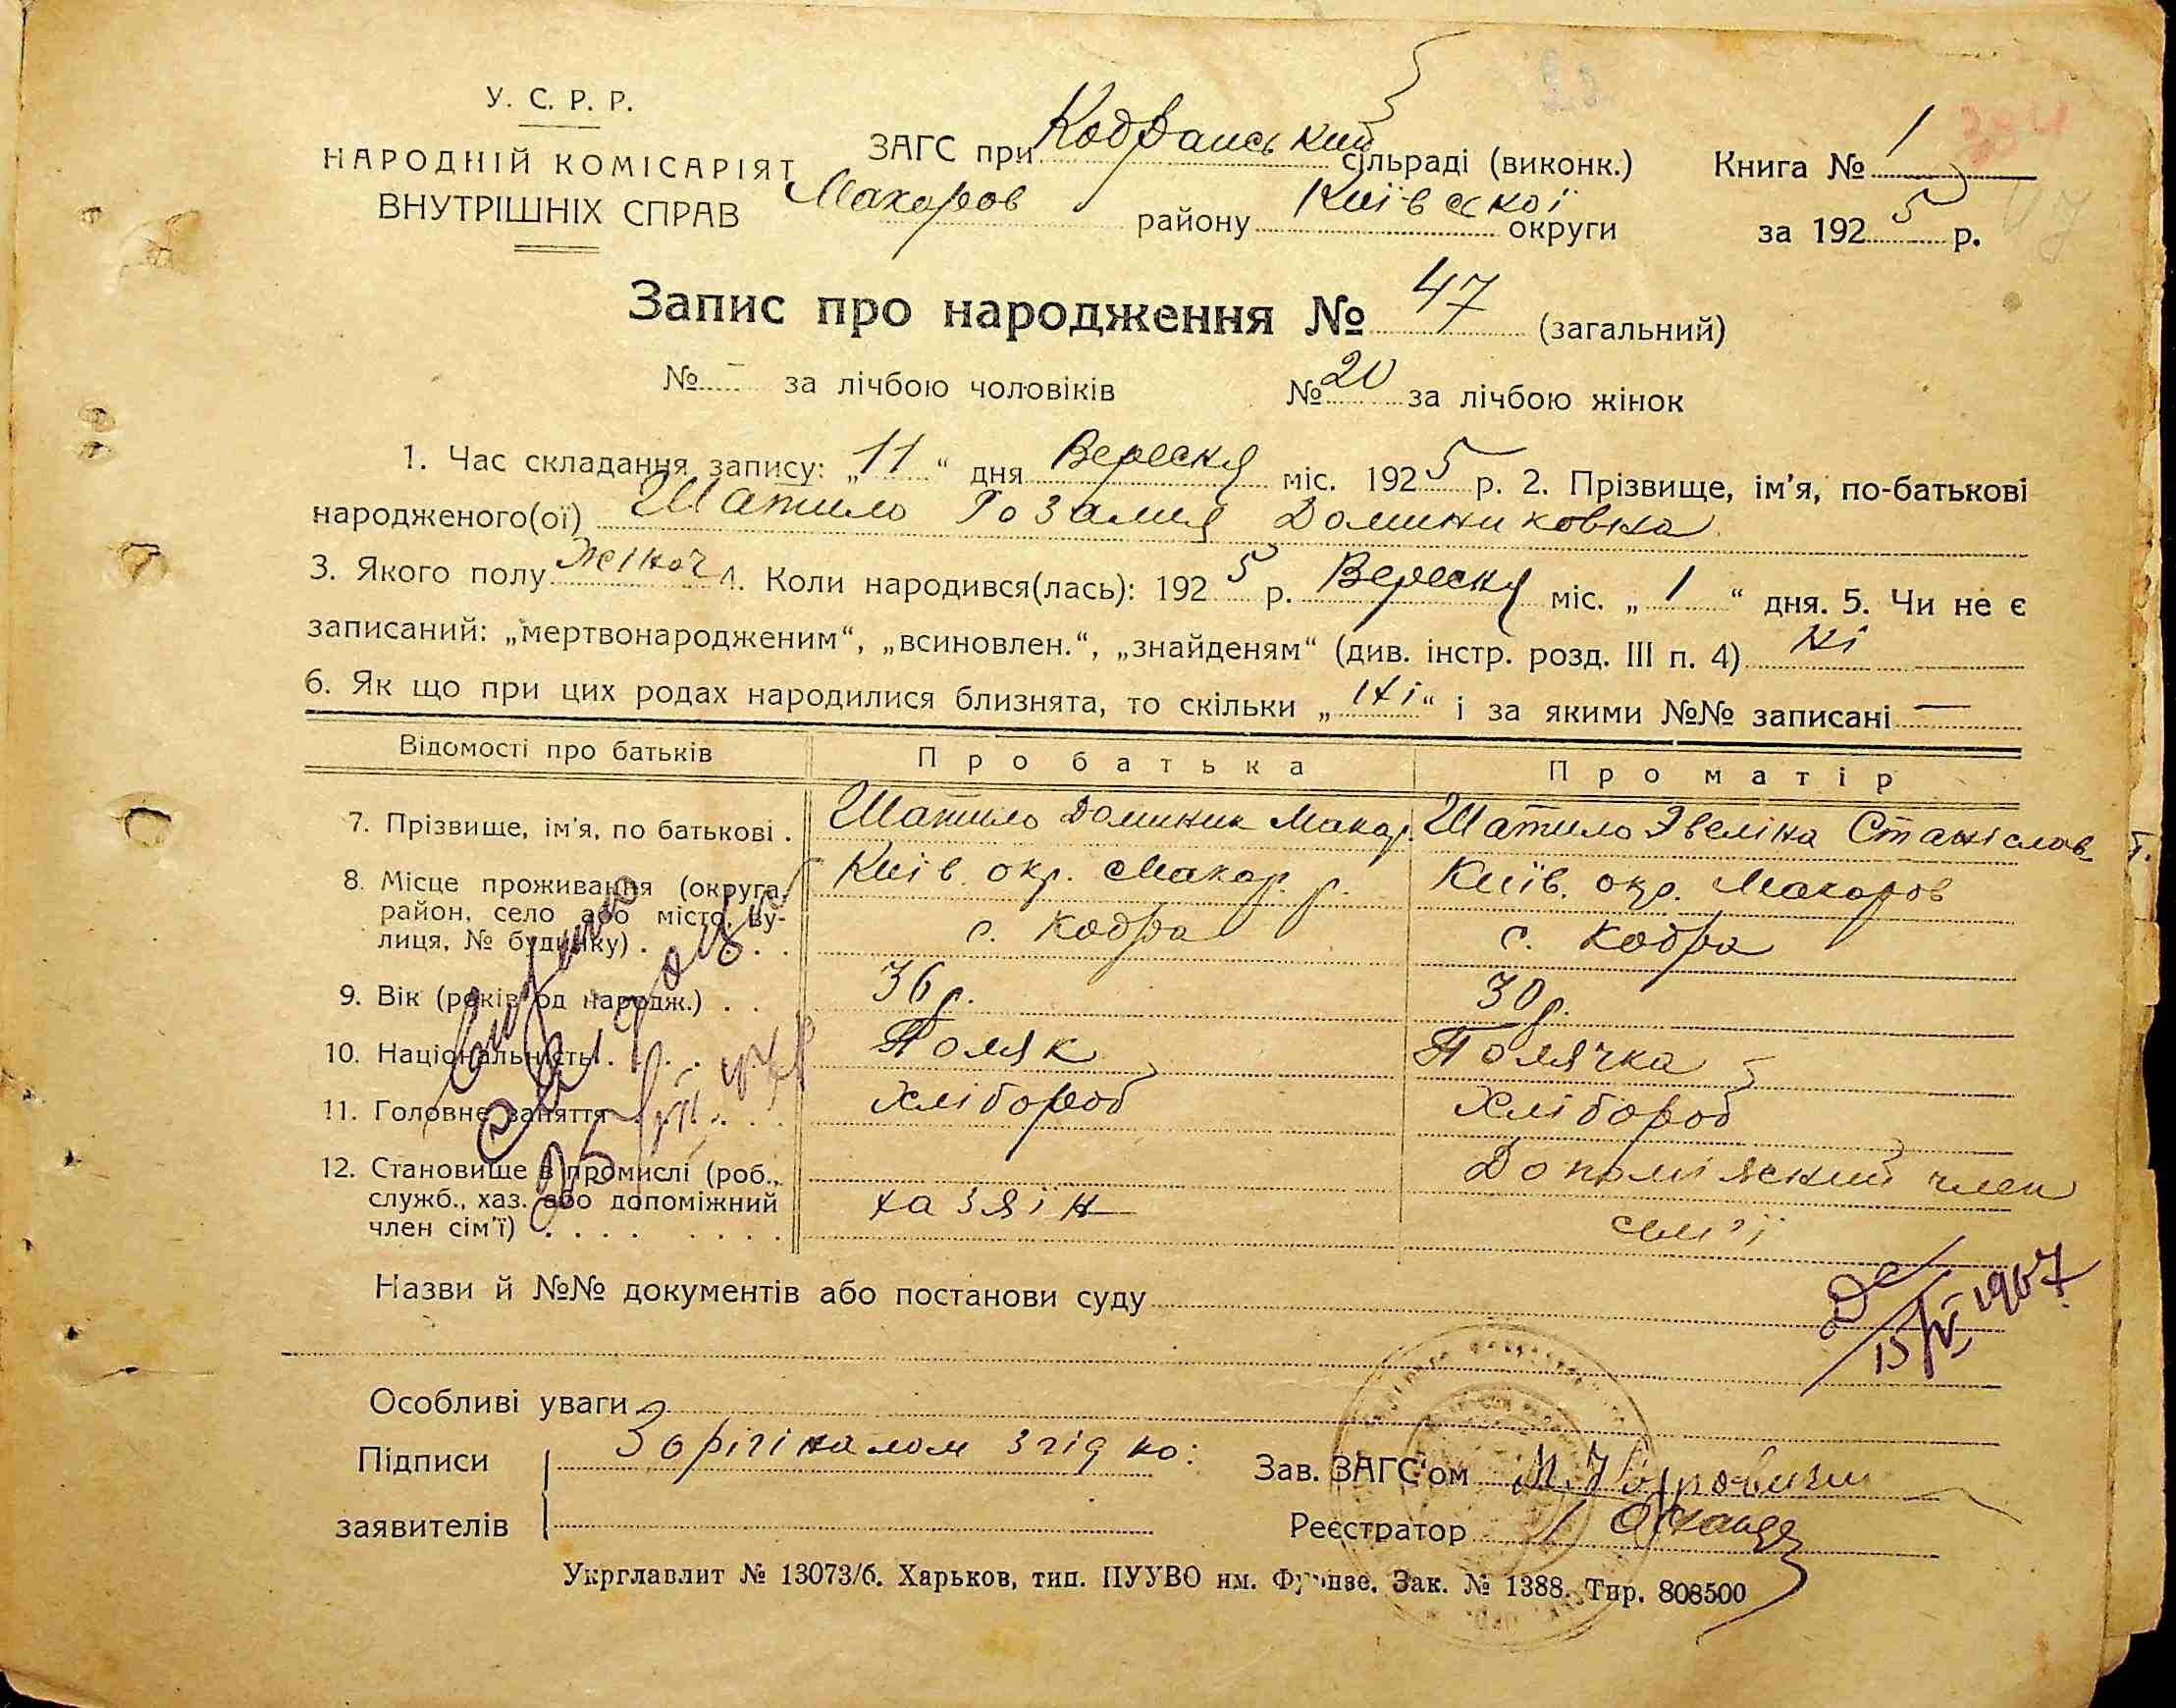 У. С. Р. Р.
НАРОДНІЙ КОМІСАРІЯТ
ВНУТРІШНІХ СПРАВ
ЗАГС при Кодранський сільраді (виконк.)
Макаров району Київської округи
Книга № 1
за 1925 р.
Запис про народження № 47 (загальний)
№ - за лічбою чоловіків № 20 за лічбою жінок
1. Час складання запису: „11“ дня Вересня міс. 1925 р. 2. Прізвище, ім'я, по-батькові
народженого(ої) Шатило Розалия Доминиковна
3. Якого полу жіноч 4. Коли народився(лась): 1925 р. Вересня міс. „1“ дня. 5. Чи не є
записаний: „мертвонародженим“, „всиновлен.“, „знайденям“ (див. інстр. розд. III п. 4) ні
6. Як що при цих родах народилися близнята, то скільки „ні“ і за якими №№ записані —
Відомості про батьків Про батька Про матір
7. Прізвище, ім'я, по батькові . Шатило Доминик Макар. Шатило Эвеліна Станіслав
8. Місце проживання (округа, Київ. окр. Макар. р. Київ. окр. Макаров
район, село або місто, ву- с. Кодра с. Кодра
лиця, № будинку) . . .
9. Вік (років од народж.) . . 36 р. 30 р.
10. Національність . . . . Поляк Полячка
11. Головне заняття . . . Хлібороб Хлібороб
12. Становище в промислі (роб., Допоміжний член
служб., хаз. або допоміжний хазяїн сем'ї
член сім'ї) . . . . . . . .
Назви й №№ документів або постанови суду
15/VI 1967
Особливі уваги
Підписи З орігіналом згідно: Зав. ЗАГС'ом
заявителів Реєстратор
Укрглавлит № 13073/б. Харьков, тип. ПУУВО им. Фрунзе. Зак. № 1388. Тир. 808500